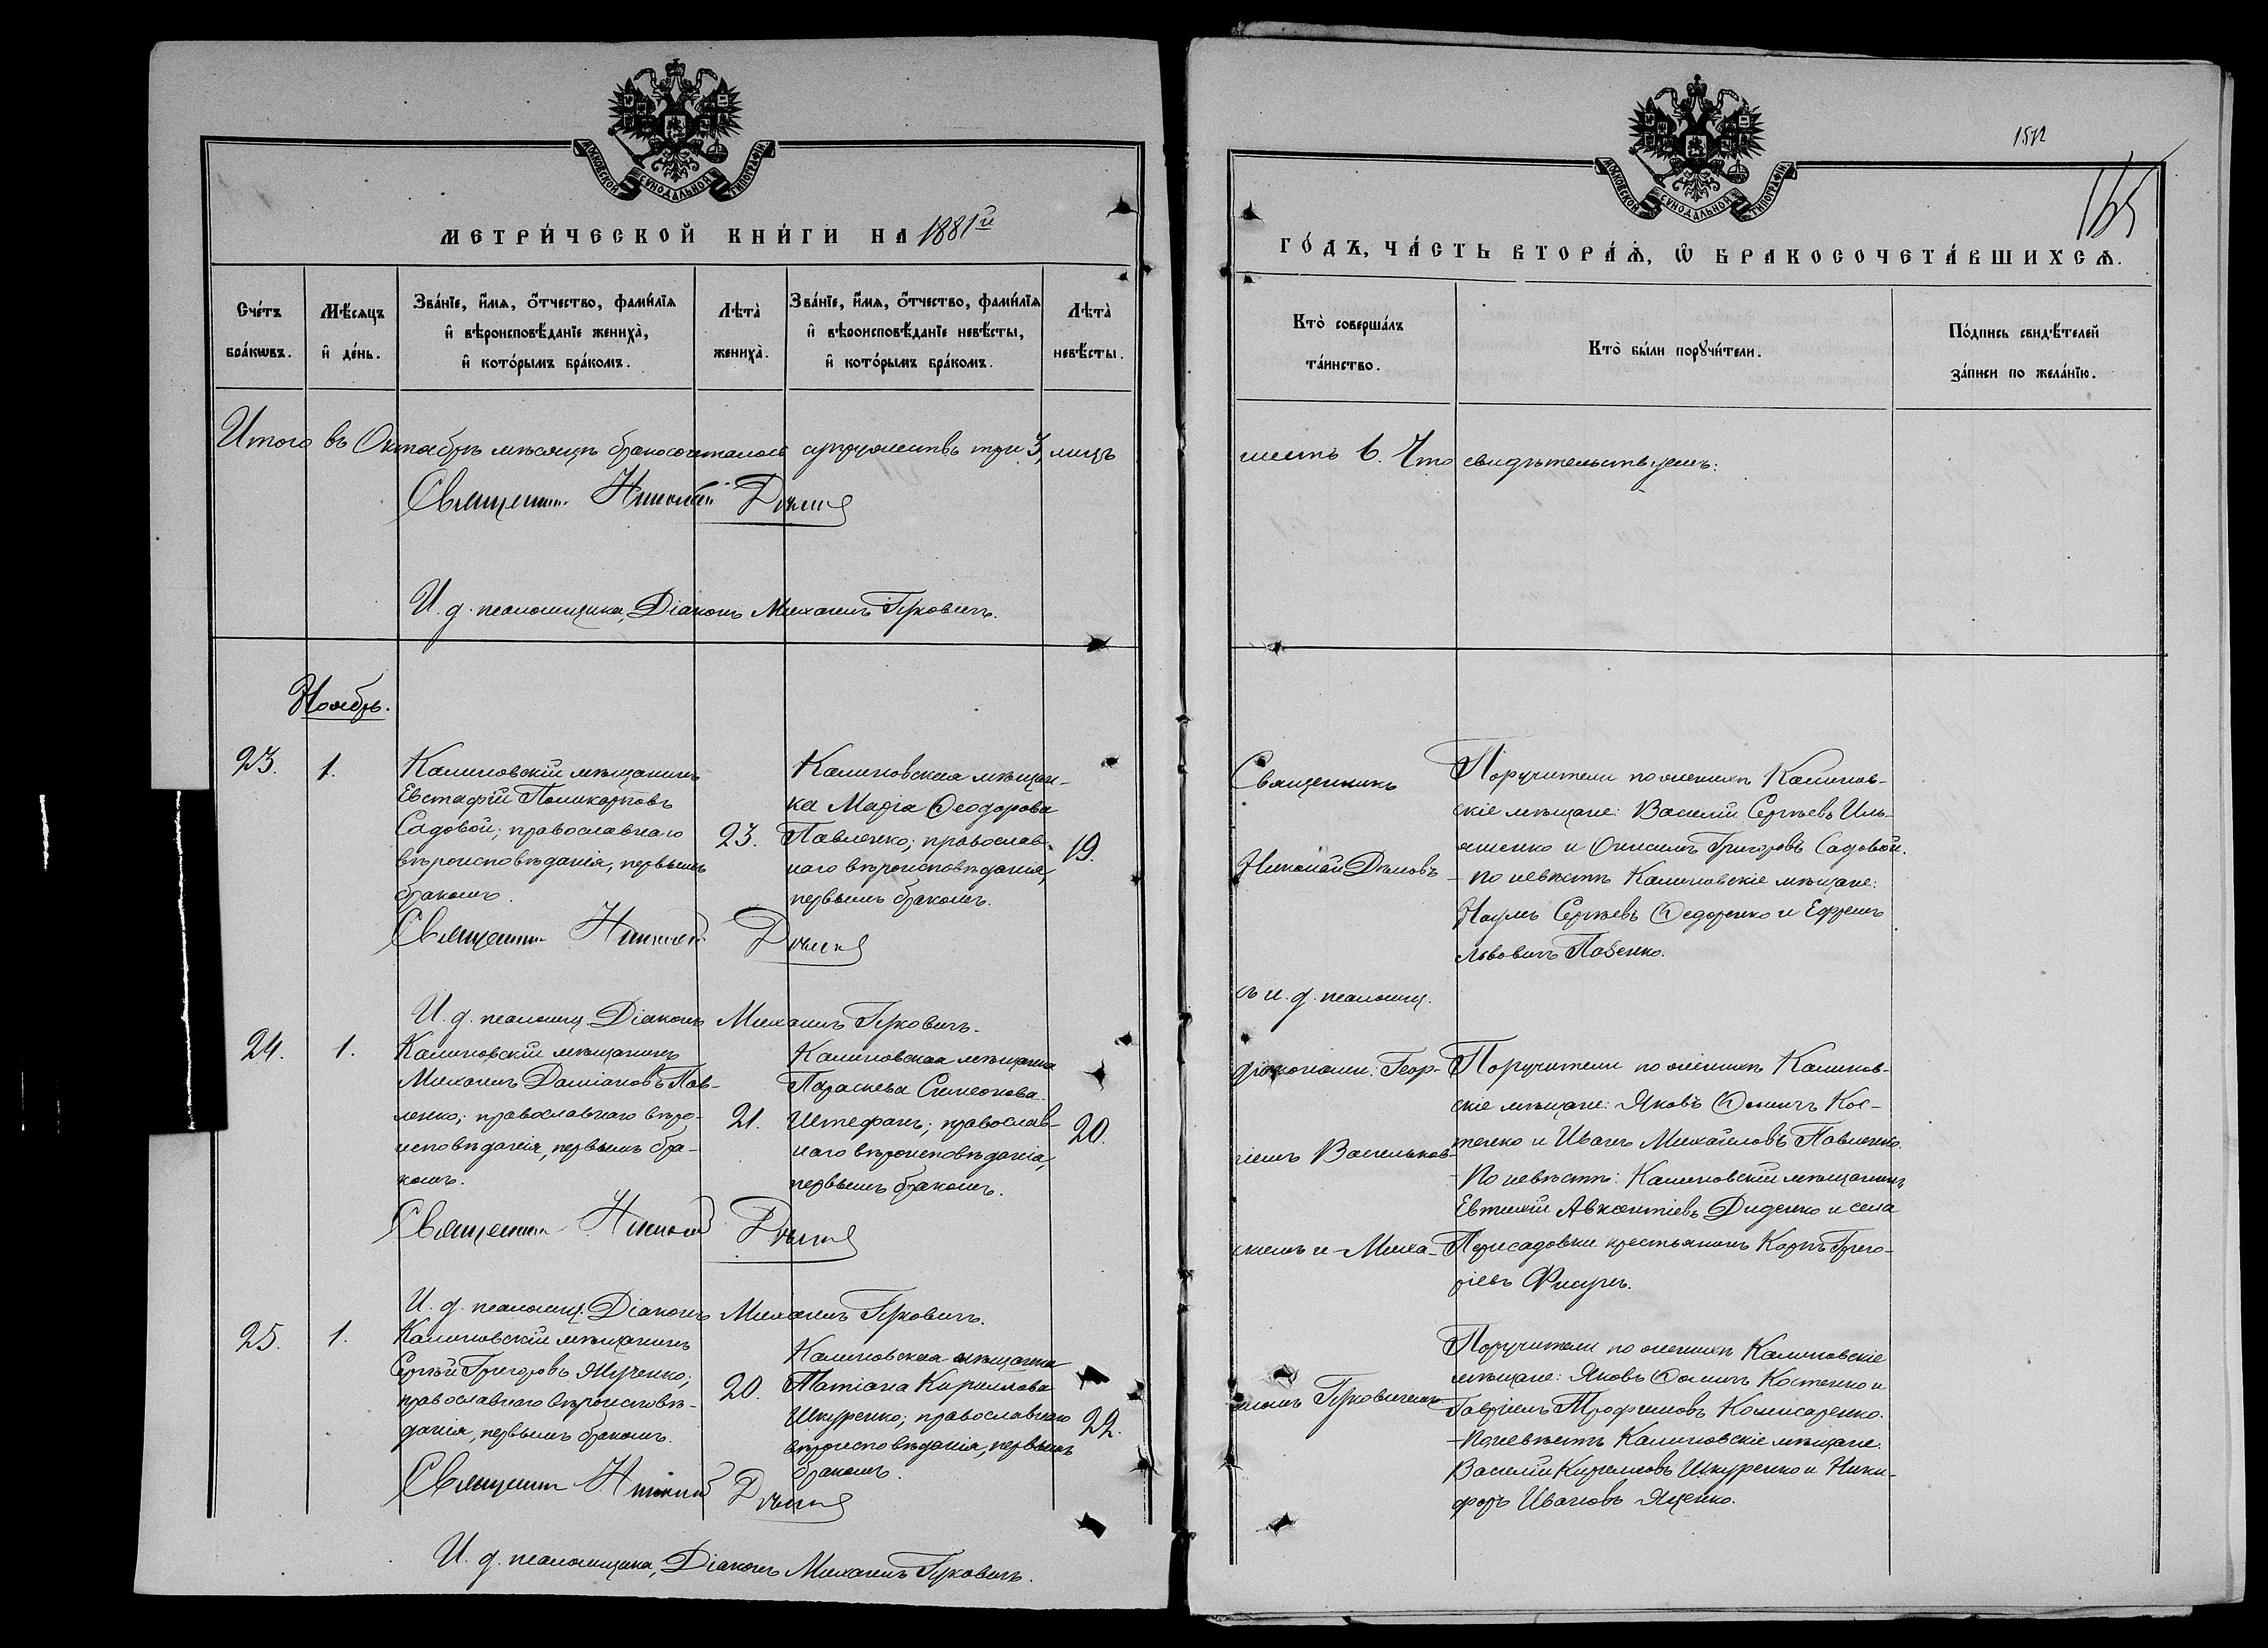 МОСКОВСКОЙ СѴНОДАЛЬНОЙ ТИПОГРАФІИ
МЕТРИ́ЧЕСКОЙ КНИ́ГИ НА 1881й
Сче́тъ бра́кѡвъ.
Мѣ́сяцъ и҆ де́нь.
Зва́нїе, и҆́мѧ, ѻ҆́тчество, фами́лїѧ
и҆ вѣроисповѣ́данїе жениха̀,
и҆ кото́рымъ бра́комъ.
Лѣта̀ жениха̀.
Зва́нїе, и҆́мѧ, ѻ҆́тчество, фами́лїѧ
и҆ вѣроисповѣ́данїе невѣ́сты,
и҆ кото́рымъ бра́комъ.
Лѣта̀ невѣ́сты.
Итого въ Октябрѣ мѣсяцѣ бракосочеталось супружествъ три 3, лицъ
Священникъ Николай
И. д. псаломщика, Діаконъ Михаилъ Гурковичъ.
Ноябрь.
23.
1.
Калиновскій мѣщанинъ
Евстафій Поликарповъ
Садовой; православнаго
вѣроисповѣданія, первымъ
бракомъ.
23.
Калиновская мѣщан-
ка Марія Ѳеодорова
Павленко; православ-
наго вѣроисповѣданія,
первымъ бракомъ.
19.
Священникъ Николай
И. д. псаломщ. Діаконъ Михаилъ Гурковичъ.
24.
1.
Калиновскій мѣщанинъ
Михаилъ Даміановъ Пав-
ленко; православнаго вѣро-
исповѣданія, первымъ бра-
комъ.
21.
Калиновская мѣщанка
Параскева Симеонова
Штефанъ; православ-
наго вѣроисповѣданія,
первымъ бракомъ.
20.
Священникъ Николай
И. д. псаломщ. Діаконъ Михаилъ Гурковичъ.
25.
1.
Калиновскій мѣщанинъ
Сергѣй Григоровъ
православнаго вѣроисповѣ-
данія, первымъ бракомъ.
20.
Калиновская мѣщанка
Татіана Кириллова
Шкуренко; православнаго
вѣроисповѣданія, первымъ
бракомъ.
22.
Священникъ Николай
И. д. псаломщика, Діаконъ Михаилъ Гурковичъ.
МОСКОВСКОЙ СѴНОДАЛЬНОЙ ТИПОГРАФІИ
ГО́ДЪ, ЧА́СТЬ ВТОРА́Ѧ, Ѡ҆ БРАКОСОЧЕТА́ВШИХСѦ.
Кто̀ соверша́лъ
та́инство.
Кто̀ бы́ли порꙋчи́тели.
По́дпись свидѣ́телей
за́писи по жела́нїю.
шесть 6. Что свидѣтельствуемъ:
Священникъ
Николай Дѣмовъ
съ и. д. псаломщ.
діаконами: Геор-
гіемъ Васильков-
скимъ и Миха-
иломъ Гурковичемъ
Поручители по женихѣ Калинов-
скіе мѣщане: Василій Сергѣевъ Иль-
яшенко и Онисимъ Григоровъ Садовой.
- по невѣстѣ Калиновскіе мѣщане:
Наумъ Сергѣевъ Ѳедоренко и Ефремъ
Львовичъ
Поручители по женихѣ Калинов-
скіе мѣщане: Яковъ Ѳоминъ Кос-
тенко и Иванъ Михайловъ Павленко.
- По невѣстѣ: Калиновскій мѣщанинъ
Евтихій Авксентіевъ Диденко и села
Пересадовки крестьянинъ Карпъ Григо-
ріевъ
Поручители по женихѣ Калиновскіе
мѣщане: Яковъ Ѳоминъ Костенко и
Гавріилъ Трофимовъ Комисаренко.
- По невѣстѣ Калиновскіе мѣщане:
Василій Кирилловъ Шкуренко и Ники-
форъ Ивановъ Яценко.